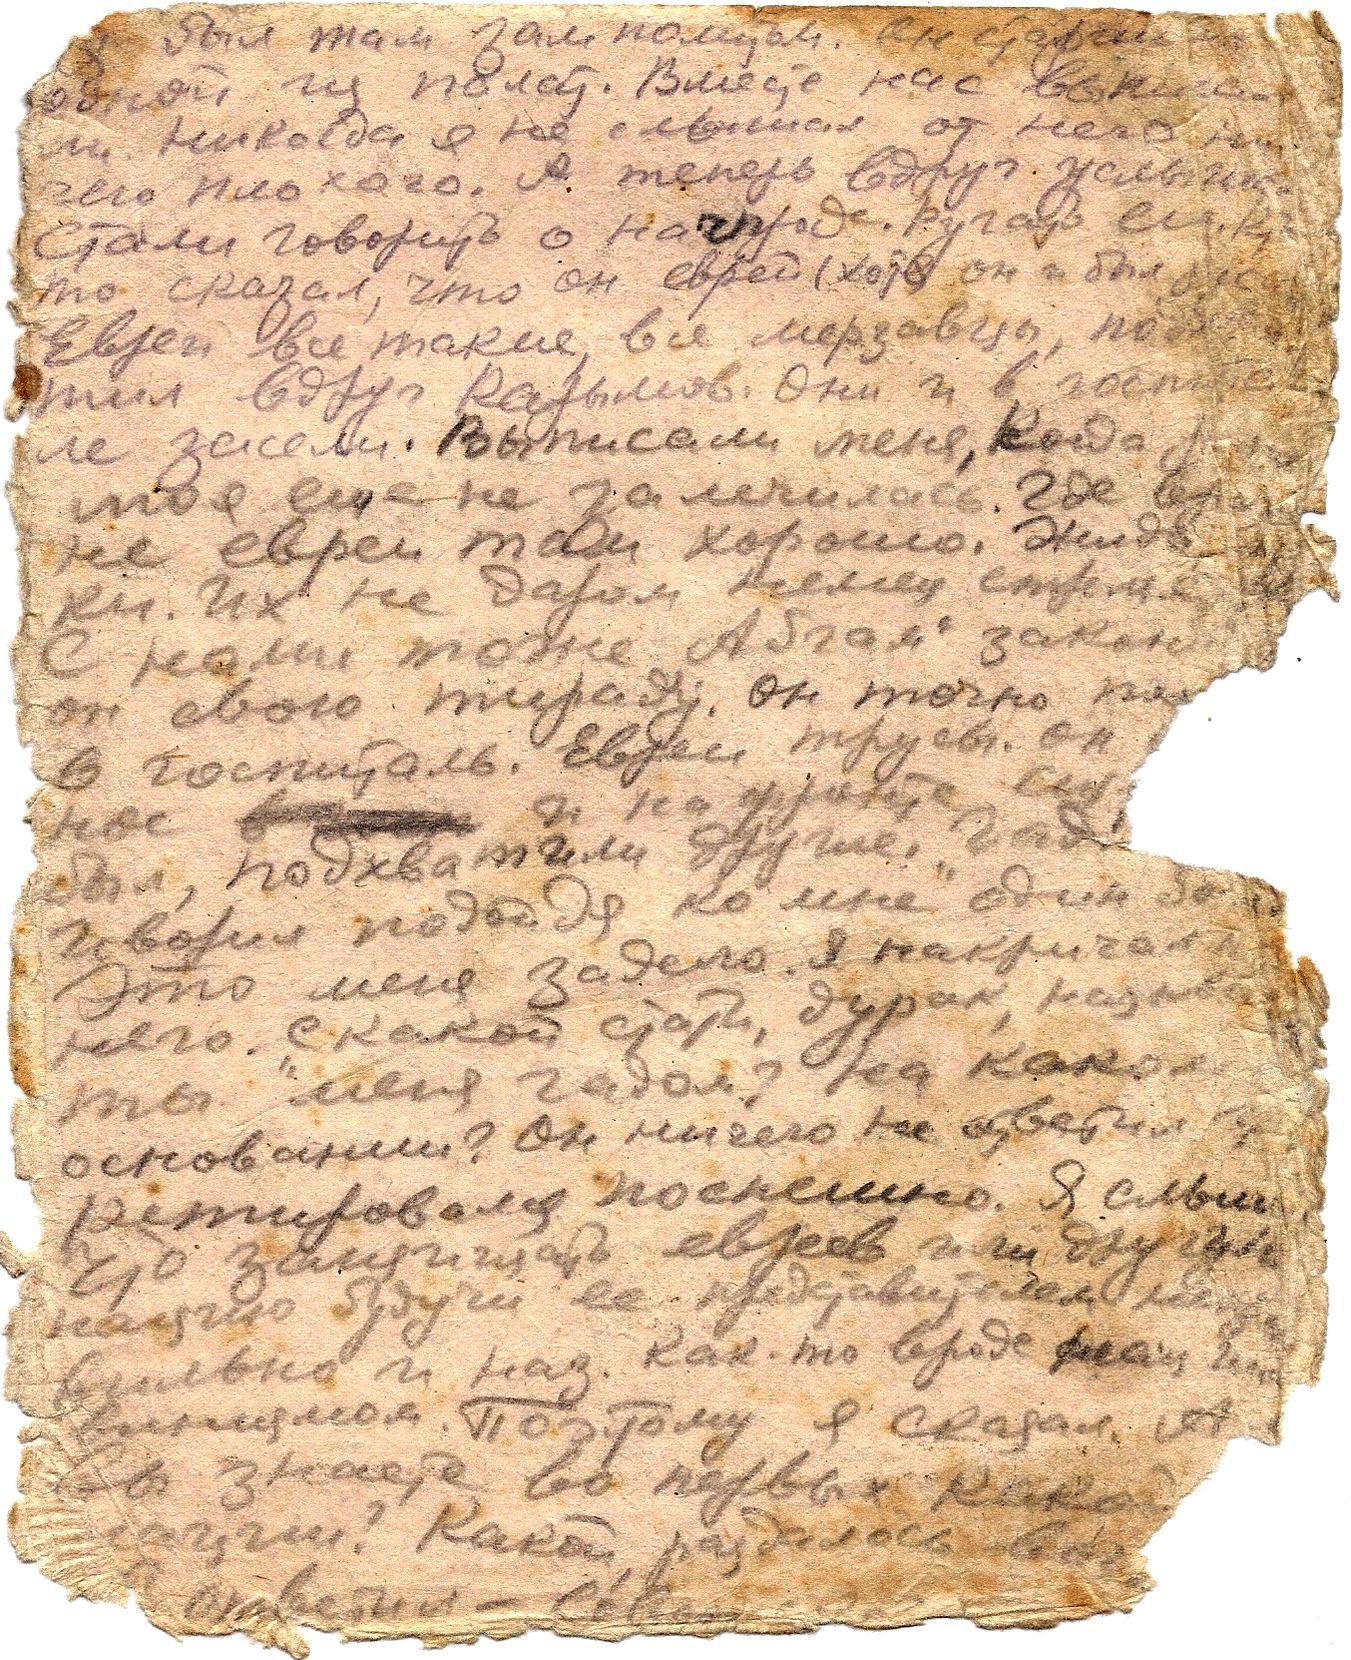 Я был там зам политом. Он старшим
одной из палат. Вместе нас выписа-
ли. Никогда я не слышал от него ни-
чего плохого. А теперь вдруг услыш
Стали говорить о нач проде. Ругать его. К
то сказал, что он еврей (хотя он и был
Евреи все такие, все мерзавцы, подх
тил вдруг Казымов. Они и в госпита-
ле засели. Выписали меня, когда
моя еще не залечилась. Где
не евреи там хорошо. Жидв
ки. Их не даром немец стреля
С нами тоже Абгам" закон
он свою тираду. Он точно
в госпиталь. Евреи трусы. Он
нос и на фронте
был, подхватили другие. "Гад
говорил подойдя ко мне один
Это меня задело. Я накричал
него. С какой стати, дурак, назы
ты "меня гадом? На каком
основании? Он ничего не ответил и
ретировался поспешно. Я слыш
что защищать евреев или другую
нацию будучи ее представителем
вильно и наз. как-то вроде
винизмом. Поэтому я сказал. А
вы знаете во первых какой
нации? Какой раздалось
Я ответил –